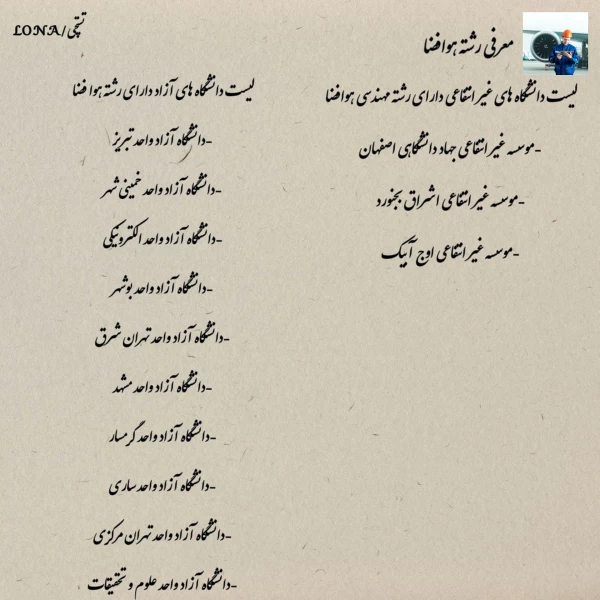 معرفی رشته هوافضا
LONA/تستچی
لیست دانشگاه های غیرانتفاعی دارای رشته مهندسی هوافضا
-موسسه غیرانتفاعی جهاد دانشگاهی اصفهان
-موسسه غیرانتفاعی اشراق بجنورد
-موسسه غیرانتفاعی اوج آبیک
لیست دانشگاه های آزاد دارای رشته هوا فضا
-دانشگاه آزاد واحد تبریز
-دانشگاه آزاد واحد خمینی شهر
-دانشگاه آزاد واحد الکترونیکی
-دانشگاه آزاد واحد بوشهر
-دانشگاه آزاد واحد تهران شرق
-دانشگاه آزاد واحد مشهد
-دانشگاه آزاد واحد گرمسار
-دانشگاه آزاد واحد ساری
-دانشگاه آزاد واحد تهران مرکزی
-دانشگاه آزاد واحد علوم و تحقیقات